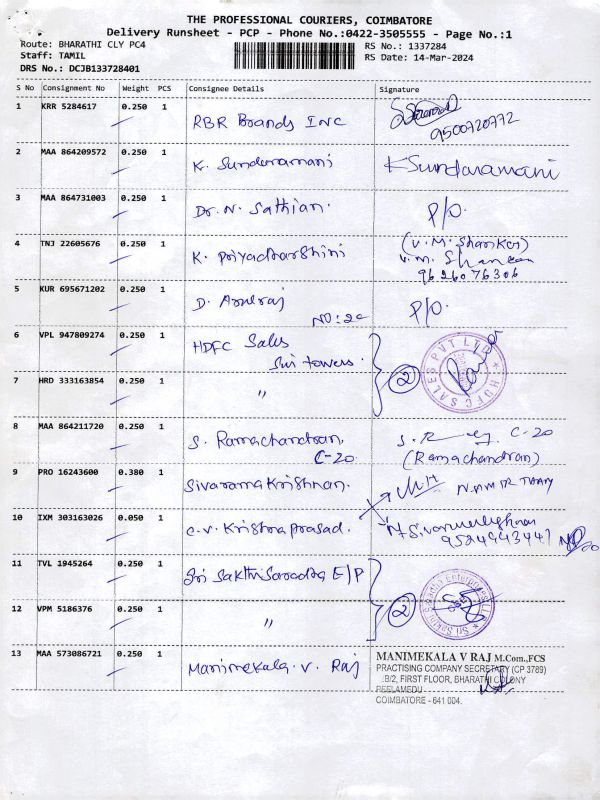 THE PROFESSIONAL COURIERS, COIMBATORE
Delivery Runsheet - PCP - Phone No.:0422-3505555 - Page No.:1
Route: BHARATHI CLY PC4
RS No.: 1337284
Staff: TAMIL
RS Date: 14-Mar-2024
DRS No.: DCJB133728401
S No Consignment No Weight PCS Consignee Details Signature
1 KRR 5284617 0.250 1 RBR Brands INC
9500720772
2 MAA 864209572 0.250 1 K. Sundaramani K Sundaramani
3 MAA 864731003 0.250 1 Dr. N. Sathian. P/O.
4 TNJ 22605676 0.250 1 K. Priyadharshini (V.M. Shankar)
V.M. Shankar
9626076306
5 KUR 695671202 0.250 1 D. Arulraj P/O.
NO: 20
6 VPL 947809274 0.250 1 HDFC Sales
Sri towers.
2
HDFC SALES PVT LTD
7 HRD 333163854 0.250 1 "
8 MAA 864211720 0.250 1 S. Ramachandran. C-20
C-20 (Ramachandran)
9 PRO 16243600 0.380 1 Sivarama Krishnan.
10 IXM 303163026 0.050 1 C.V. Krishna prasad.
9524943441
11 TVL 1945264 0.250 1 Sri Sakthi Saradha E/P
2
12 VPM 5186376 0.250 1 "
13 MAA 573086721 0.250 1 Manimekala. V. Raj
MANIMEKALA V RAJ M.Com.,FCS
PRACTISING COMPANY SECRETARY (CP 3789)
B/2, FIRST FLOOR, BHARATHI COLONY
PEELAMEDU
COIMBATORE - 641 004.